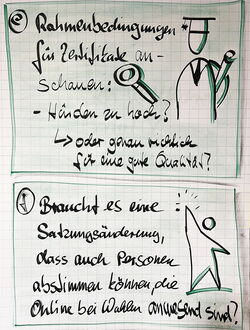 e Rahmenbedingungen
für Zertifikate an-
schauen:
- Hürden zu hoch?
↳ oder genau richtig
für eine gute Qualität?
f Braucht es eine
Satzungsänderung,
dass auch Personen
abstimmen können, die
Online bei Wahlen anwesend sind?